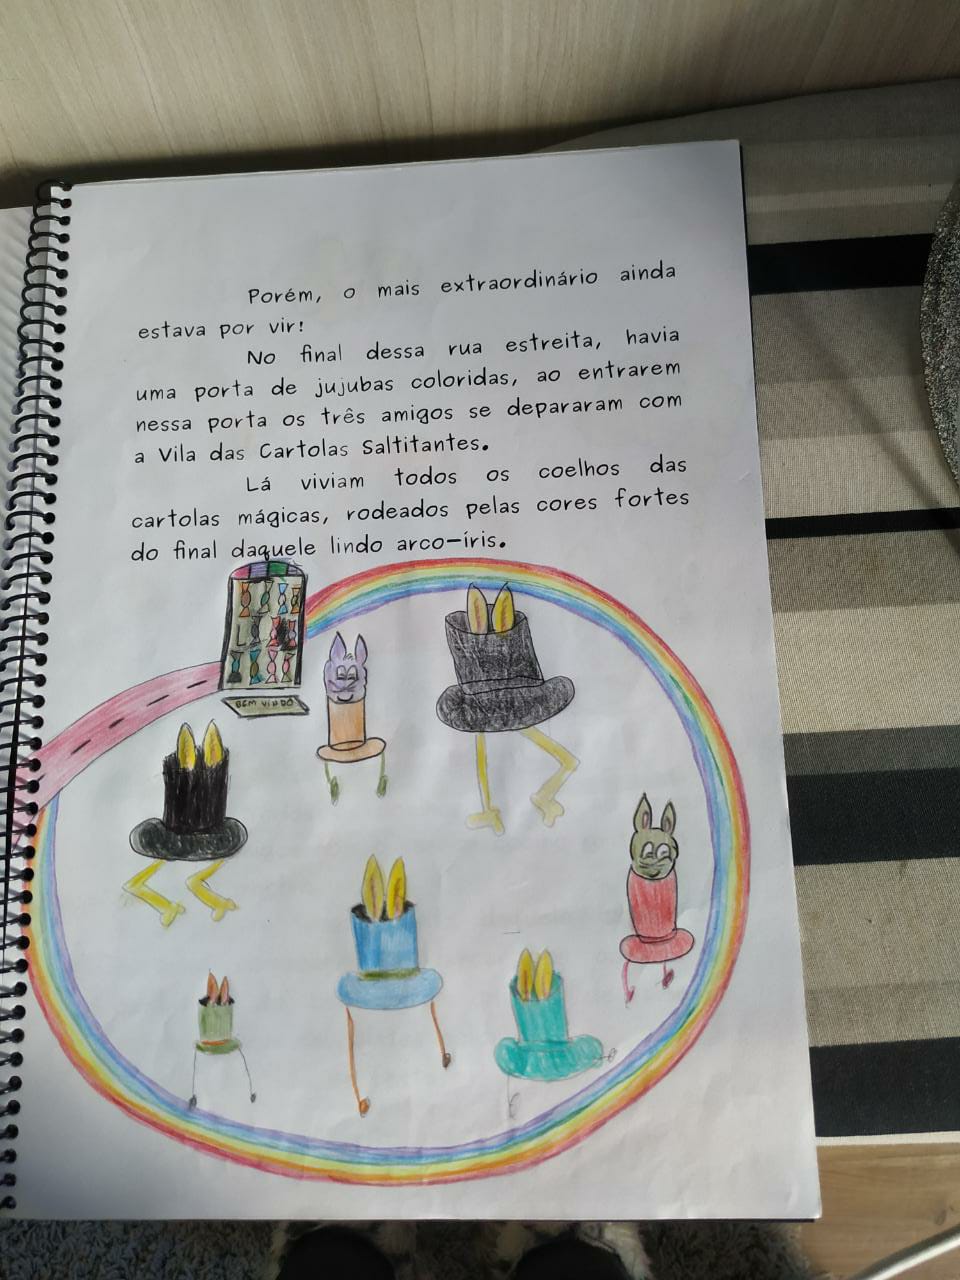 Porém, o mais extraordinário ainda
estava por vir!
No final dessa rua estreita, havia
uma porta de jujubas coloridas, ao entrarem
nessa porta os três amigos se depararam com
a Vila das Cartolas Saltitantes.
Lá viviam todos os coelhos das
cartolas mágicas, rodeados pelas cores fortes
do final daquele lindo arco-íris.
BEM VINDO